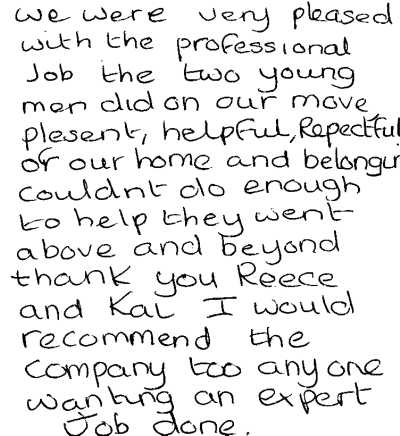 we were very pleased
with the professional
Job the two young
men did on our move
plesent, helpful, Repectful
of our home and belongin
couldnt do enough
to help they went
above and beyond
thank you Reece
and Kal I would
recommend the
company too any one
wanting an expert
Job done.